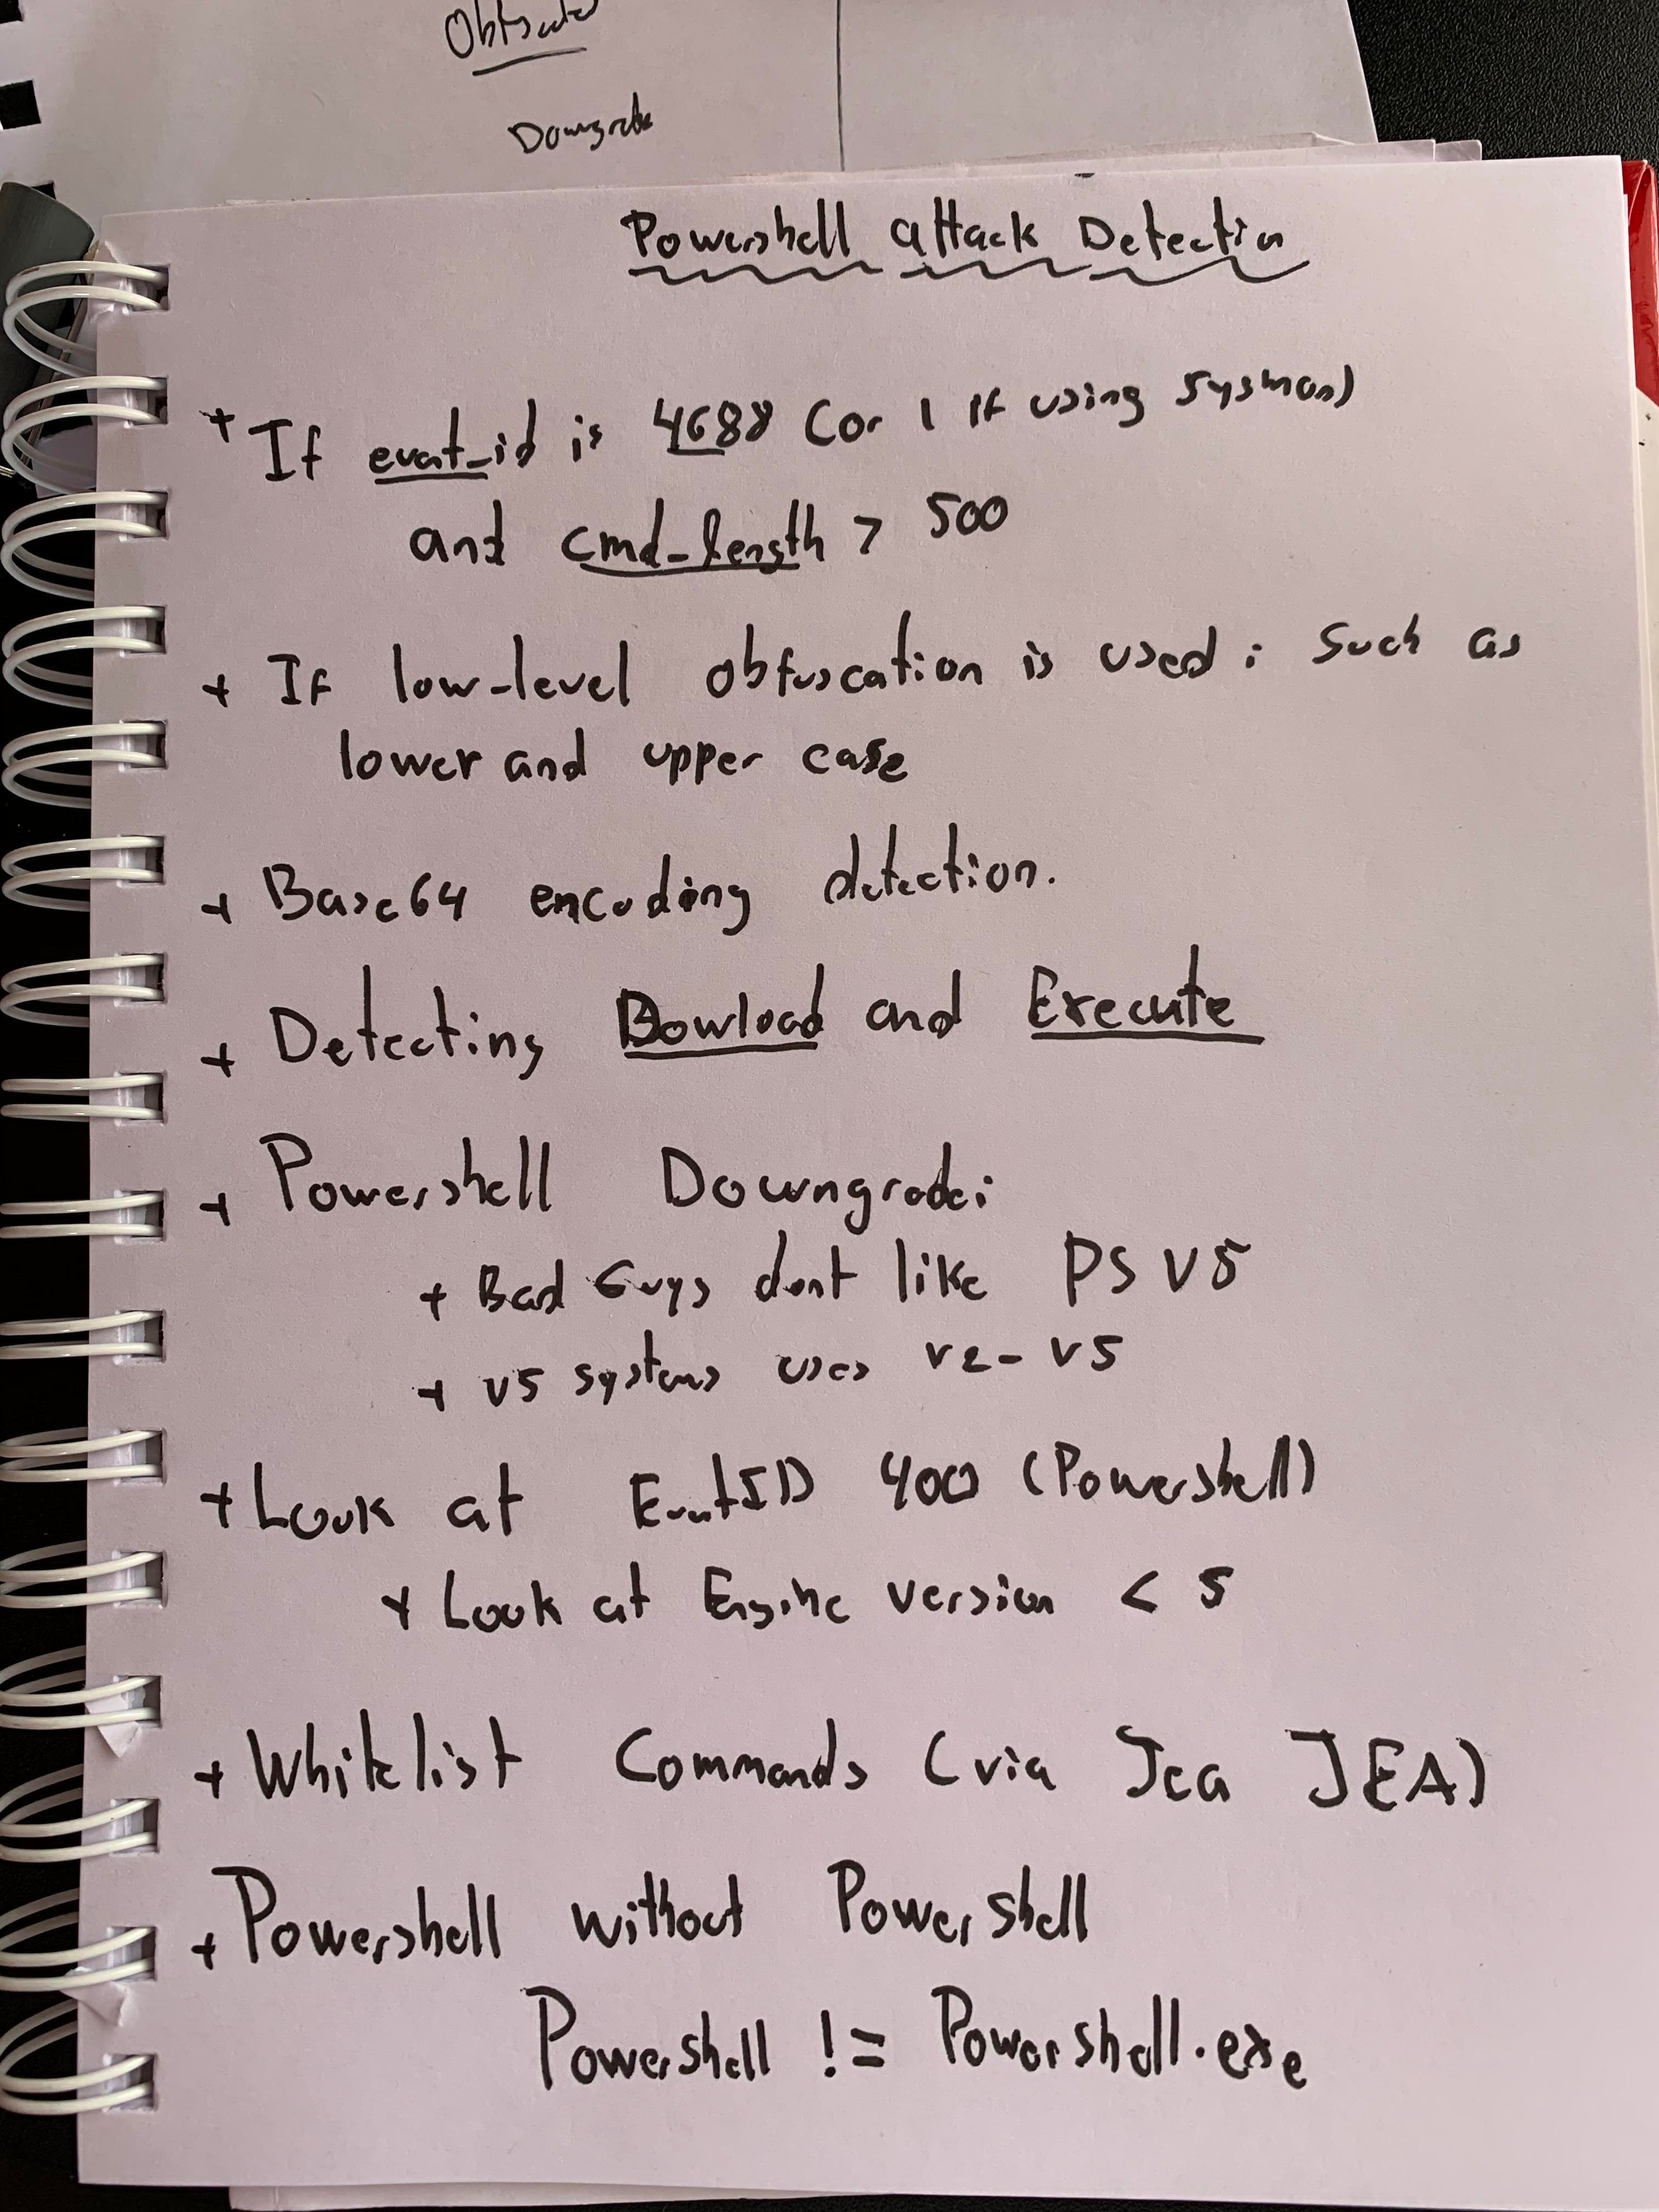 Obfuscate
Downgrade
Powershell attack Detection
+ If event_id is 4688 (or 1 if using sysmon)
and cmd_length > 500
+ If low-level obfuscation is used : Such as
lower and upper case
+ Base64 encoding detection.
+ Detecting Dowload and Execute
+ Powershell Downgrade:
+ Bad Guys dont like PS V5
+ v5 systems uses v2-v5
+ Look at EventID 400 (Powershell)
+ Look at Engine version < 5
+ Whitelist Commands (via Jea JEA)
+ Powershell without Powershell
Powershell != Powershell.exe